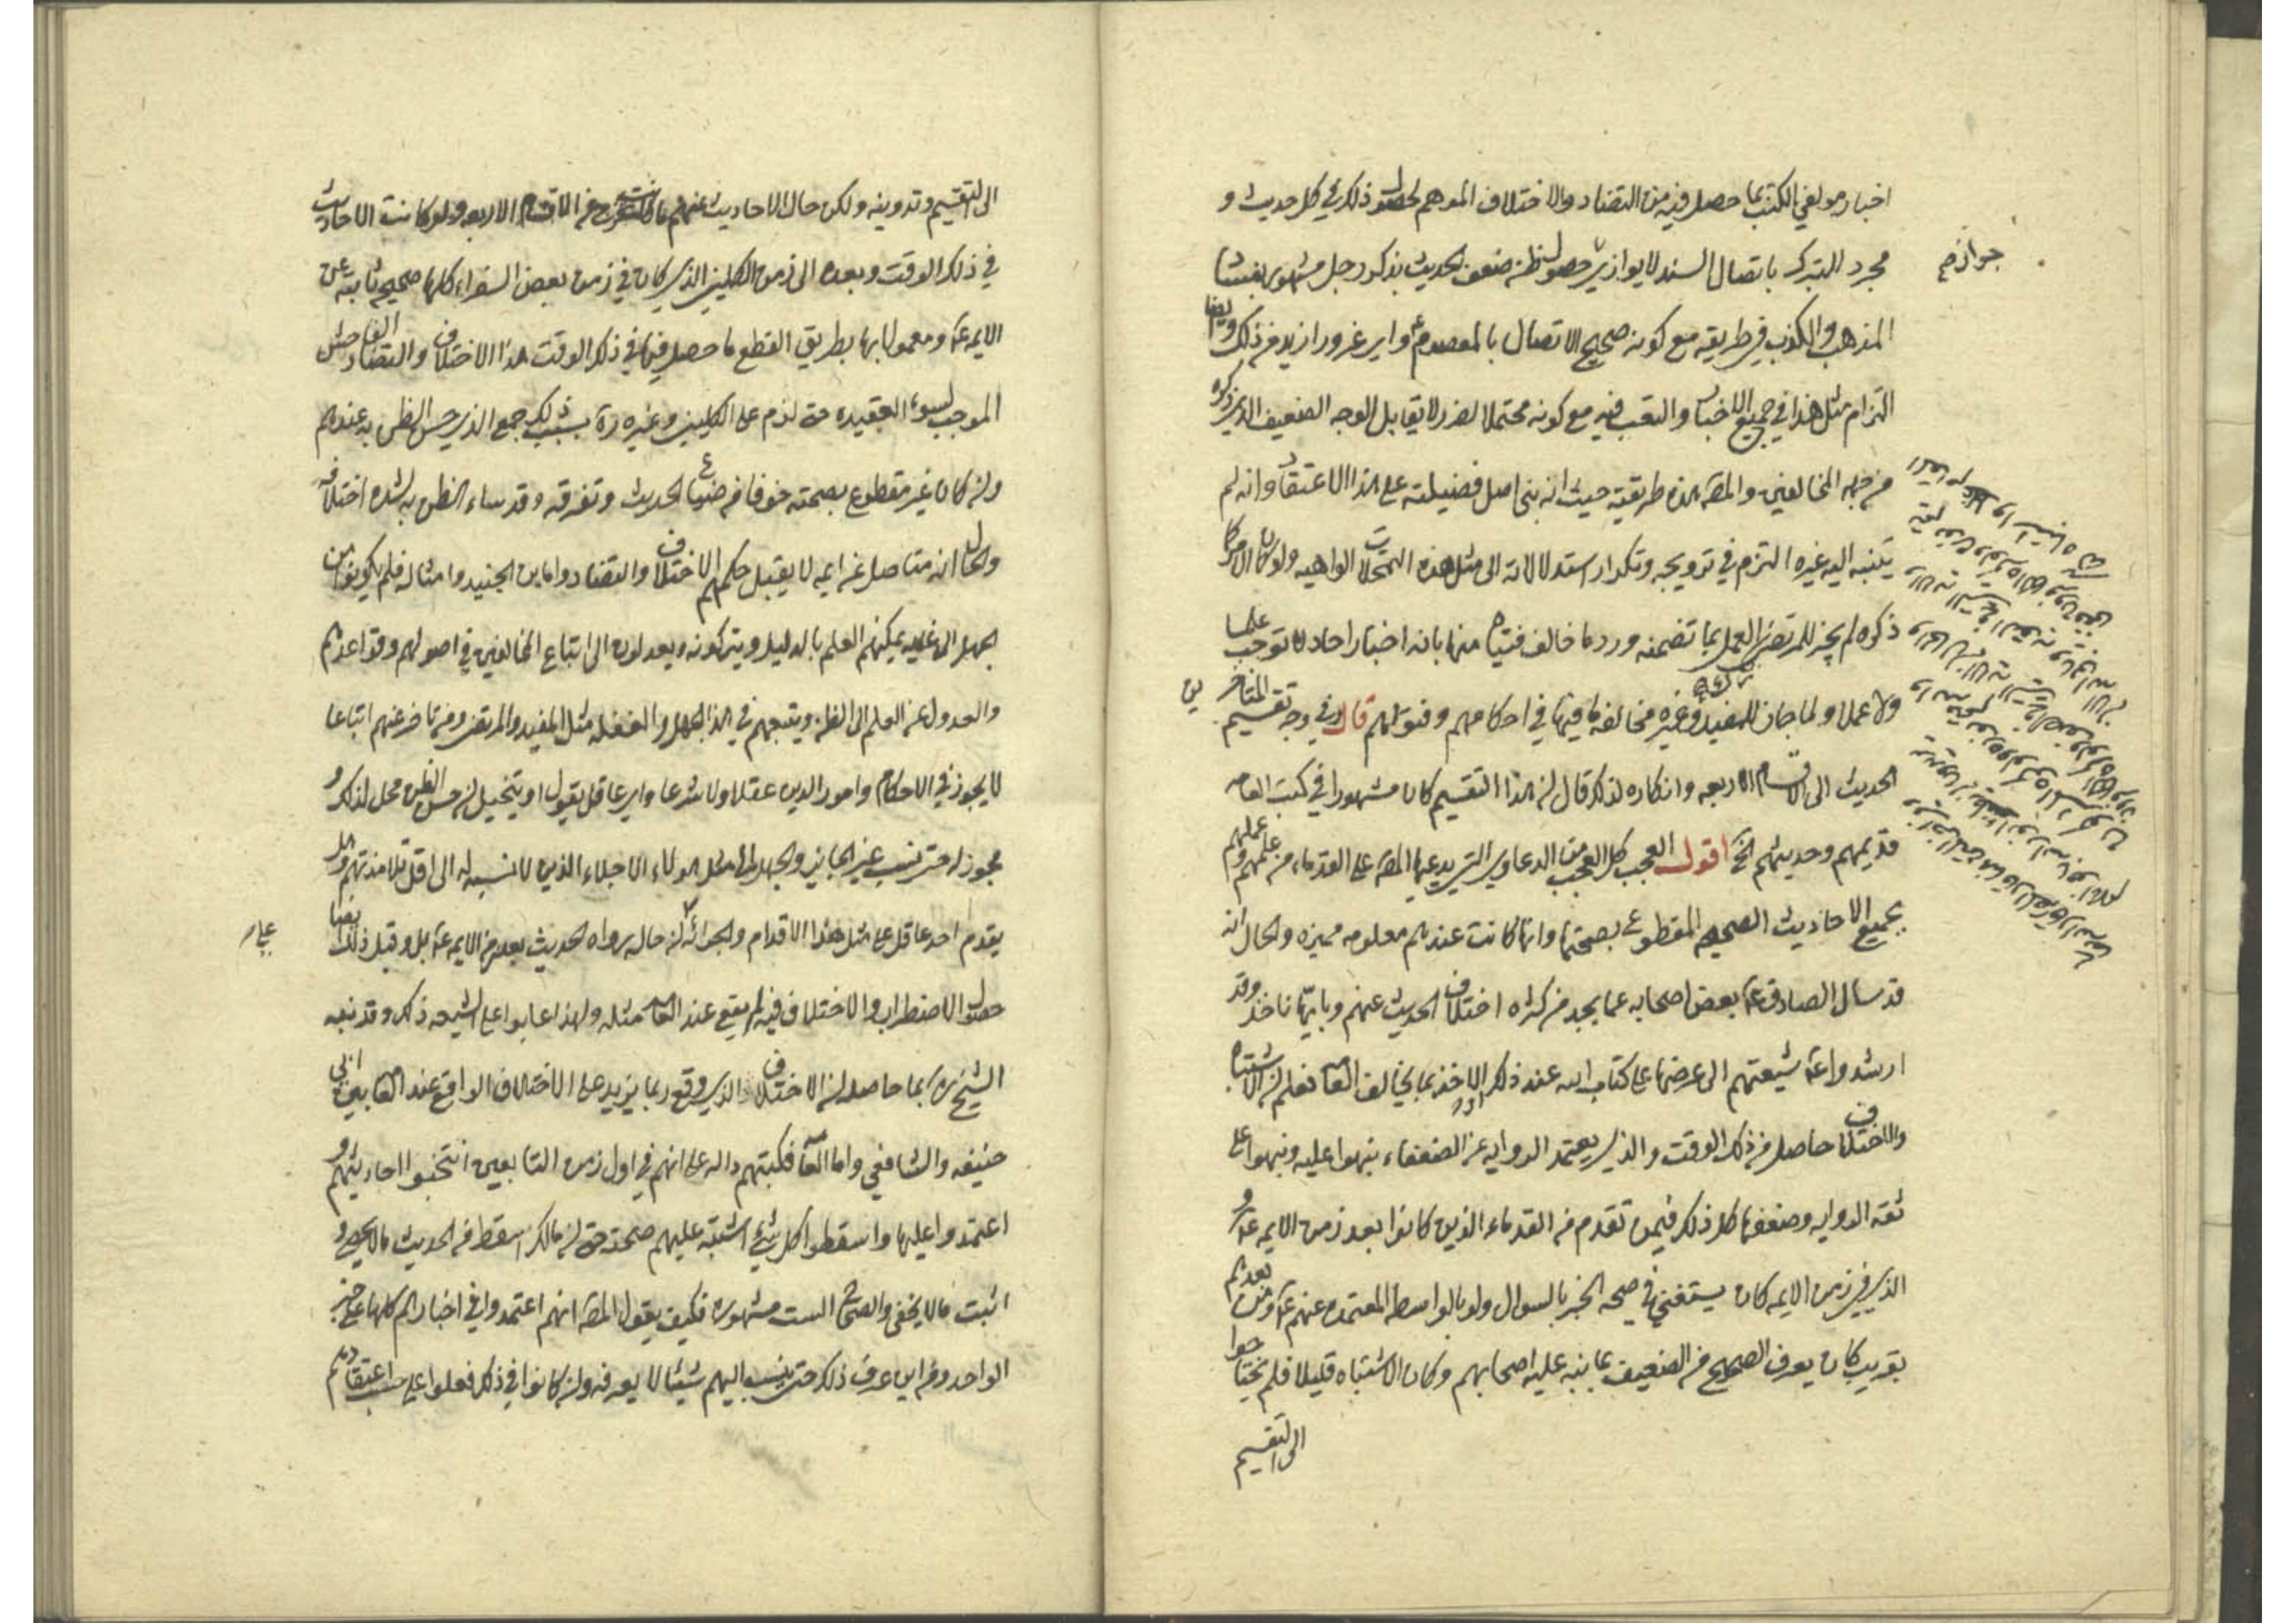 اخبار مولفي الكتب بما حصل فيه من التضاد والاختلاف الموهم لحصول ذلك في كل حديث و
مجرد التبرك باتصال السند لا يوازي حصول ظن ضعف الحديث بذكر رجل مشهور بفساد
المذهب والكذب في طريقه مع كونه صحيح الاتصال بالمعصوم ع واي غرور ازيد من ذلك وايضا
التزام مثل هذا في جميع الاخبار والتعب فيه مع كونه محتملا لضرر لا يقابل الوجه الضعيف الذي ذكره
من جهه المخالفين والمص هذه طريقته حيث انه بنى اصل فضيلته على هذا الاعتقاد وانه لم
يتنبه اليه غيره التزم في ترويجه وتكرار استدلالاته الى مثل هذه التمحلات الواهيه ولو كان الامر كما
ذكره لم يجز للمرتضى العمل بما تضمنه ورد ما خالف فتياه منها بانه اخبار احاد لا توجب علما
ولا عملا ولما جاز للمفيد وغيره مخالفه ما فيها في احكامهم وفتواهم قال في وجه تقسيم المتاخرين
الحديث الى الاقسام الاربعه وانكاره لذلك قال ان هذا التقسيم كان مشهورا في كتب العامه
قديمهم وحديثهم الخ اقول العجب كل العجب من الدعاوي التي يدعيها المص على القدماء من علمهم وعملهم
بجميع الاحاديث الصحيحه المقطوع بصحتها وانها كانت عندهم معلومه مميزه والحال انه
قد سال الصادق ع بعض اصحابه عما يجد من كثره اختلاف الحديث عنهم وبايها ناخذ وقد
ارشدوا ع شيعتهم الى عرضها على كتاب الله عند ذلك او الاخذ بما يخالف العامه فعلم ان الاشتباه
والاختلاف حاصل من ذلك الوقت والذي يعتمد الروايه عن الضعفاء ينهوا عليه ونبهوا على
ثقه الروايه وضعفها كل ذلك فيمن تقدم من القدماء الذين كانوا بعد زمن الايمه ع و
الذي في زمن الايمه كان يستغني في صحه الخبر بالسوال ولو بالواسطه المعتمده عنهم ع ومن بعدهم
بقريب كان يعرف الصحيح من الضعيف بما ينبه عليه اصحابهم وكان الاشتباه قليلا فلم يحتاجوا
الى التقسيم
الى التقسيم وتدوينه ولكن حال الاحاديث عنهم ما كانت تخرج عن الاقسام الاربعه ولو كانت الاحاديث
في ذلك الوقت وبعده الى زمن الكليني الذي كان في زمن بعض السفراء كلها صحيحه ثابته عن
الايمه ع ومعمولا بها بطريق القطع ما حصل فيها في ذلك الوقت هذا الاختلاف والتضاد الفاحش
الموجب لسوء العقيده حتى لزم على الكليني وغيره ره بسبب ذلك جمع الذي حسن الظن به عندهم
وان كان غير مقطوع بصحته خوفا من ضياع الحديث وتفرقه وقد ساء الظن به لشده اختلافه
والحال انه متاصل عن ايمه لا يقبل حكمهم الاختلاف والتضاد واما ابن الجنيد وامثاله فلم يكونوا من
الجهل الى غايه يمكنهم العلم بالدليل ويتركونه ويعدلون الى اتباع المخالفين في اصولهم وقواعدهم
والعدول عن العلم الى الظن ويتبعهم في هذا الجهل والغفله مثل المفيد والمرتضى ومن تاخر عنهم اتباعا
لا يجوز في الاحكام وامور الدين عقلا ولا شرعا واي عاقل يقول او يتخيل ان حسن الظن محل لذلك و
مجوز له حتى ينسب غير الجايز والجهل الى مثل هولاء الاجلاء الذين لا نسبه له الى اقل تلامذتهم وهل
يقدم احد عاقل على مثل هذا الاقدام والجرائه ان حال رواه الحديث بعد زمن الايمه ع بل وقبل ذلك ايضا
حصول الاضطراب والاختلاف فيه لم يقع عند العامه مثله ولهذا عابوا على الشيعه ذلك وقد نبه
الشيخ ره بما حاصله ان الاختلاف الذي وقع ربما يزيد على الاختلاف الواقع عند العامه بين ابي
حنيفه والشافعي واما العامه فكتبهم داله على انهم في اول زمن التابعين انتخبوا احاديثهم و
اعتمدوا عليها واسقطوا كل شيء اشتبه عليهم صحته حتى ان مالك اسقط من الحديث ما لا يحصى و
اثبت ما لا يخفى والصحاح الست مشهوره فكيف يقول المص انهم اعتمدوا في اخبارهم كلها على خبر
الواحد ومن اين عرف ذلك حتى ينسب اليهم شيئا لا يعرفه وان كانوا في ذلك فعلوا على حسب اعتقادهم